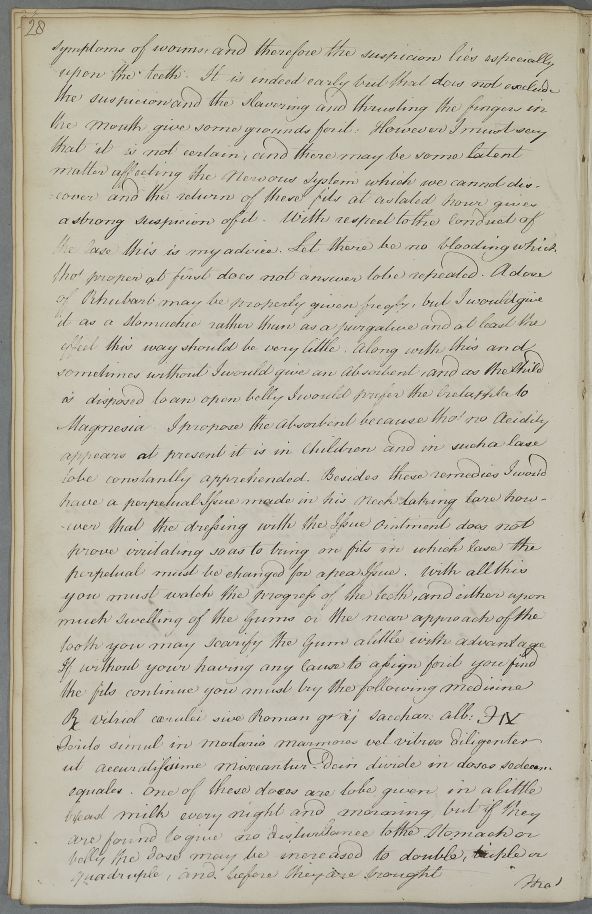 28
symptoms of worms, and therefore the suspicion lies especially
upon the teeth. It is indeed early but that does not exclude
the suspicion and the slavering and thrusting the fingers in
the mouth give some grounds for it. However I must say
that it is not certain, and there may be some latent
matter affecting the Nervous System which we cannot dis-
-cover and the return of these fits at a stated hour gives
a strong suspicion of it. With respect to the Conduct of
the Case this is my advice. Let there be no blooding which
tho' proper at first does not answer to be repeated. A dose
of Rhubarb may be properly given freqly, but I would give
it as a stomachic rather than as a purgative and at least the
effect this way should be very little. Along with this and
sometimes without I would give an Absorbent and as the Child
is disposed to an open belly I would prefer the Creta ppta to
Magnesia. I propose the absorbent because tho' no Acidity
appears at present it is in Children and in such a Case
to be constantly apprehended. Besides these remedies I would
have a perpetual Issue made in his neck taking care how-
-ever that the dressing with the Issue Ointment does not
prove irritating so as to bring on fits in which Case the
perpetual must be changed for a pea Issue. With all this
you must watch the progress of the teeth, and either upon
much swelling of the Gums or the near approach of the
tooth you may scarify the Gum a little with advantage
If without your having any Cause to assign for it you find
the fits continue you must try the following medicine
℞ vitriol cœrulei sive Roman gr ij Sacchar. alb: ℈ IV
Terito simul in mortario marmoreo vel vitreo diligenter
ut accuratissime misceantur. Dein divide in doses sedecem
equales. One of these doses are to be given in a little
breast milk every night and morning, but if they
are found to give no disturbance to the Stomach or
belly the dose may be increased to double, triple or
quadruple, and before they are brought